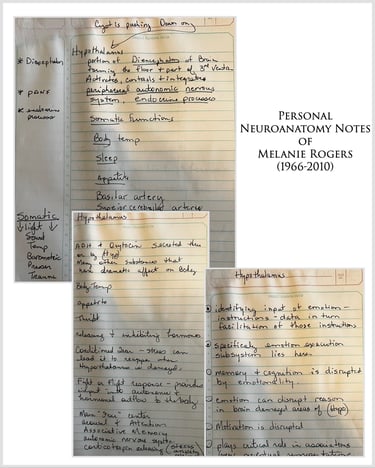 Cyst is pushing Down on
Hypothalamus
portion of Diencephalon of Brain
forming the floor & part of 3rd Ventr.
Activates, controls & integrates
peripheral autonomic nervous
system, endocrine processes
Somatic functions
Body temp
Sleep
Appetite
Basilar artery
Superior cerebellar artery
* Diencephalon
* PANF
* endocrine
processes
Somatic
Light
Sound
Temp
Barometric
Pressure
Trauma
Personal
Neuroanatomy Notes
of
Melanie Rogers
(1966-2010)
Hypothalamus
ADH & Oxytocin secreted there
or by Hypo
Many other substances that
have dramatic effect on Body
Body Temp
Appetite
Thirst
releasing & inhibiting hormones
Conditioned Fear - stress can
lead to reaper when
Hypothalamus is damaged.
Fight or Flight response - provides
input with autonomic &
hormonal action to the body
Main "Fear" center
arousal & Attention
Associative Memory
autonomic nervous system
corticotropin releasing
stress
anxiety
Hypothalamus
identifying input of emotion -
instructions - data in turn
facilitation of those instructions
specifically emotion execution
subsystem lies here.
memory & cognition is disrupted
by emotionality.
emotion can disrupt reason
in brain damaged areas of (Hypo)
Motivation is disrupted
plays critical role in associations